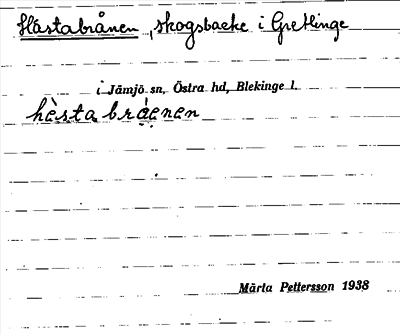 Hästabrånen, skogsbacke i Gretlinge
i Jämjö sn, Östra hd, Blekinge l.
hè̀sta brå̀enen
Märta Pettersson 1938